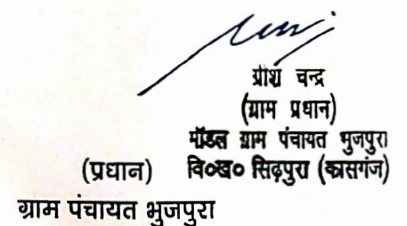 ग्रीश चन्द्र
(ग्राम प्रधान)
मॉडल ग्राम पंचायत भुजपुरा
(प्रधान) वि०ख० सिढ़पुरा (कासगंज)
ग्राम पंचायत भुजपुरा